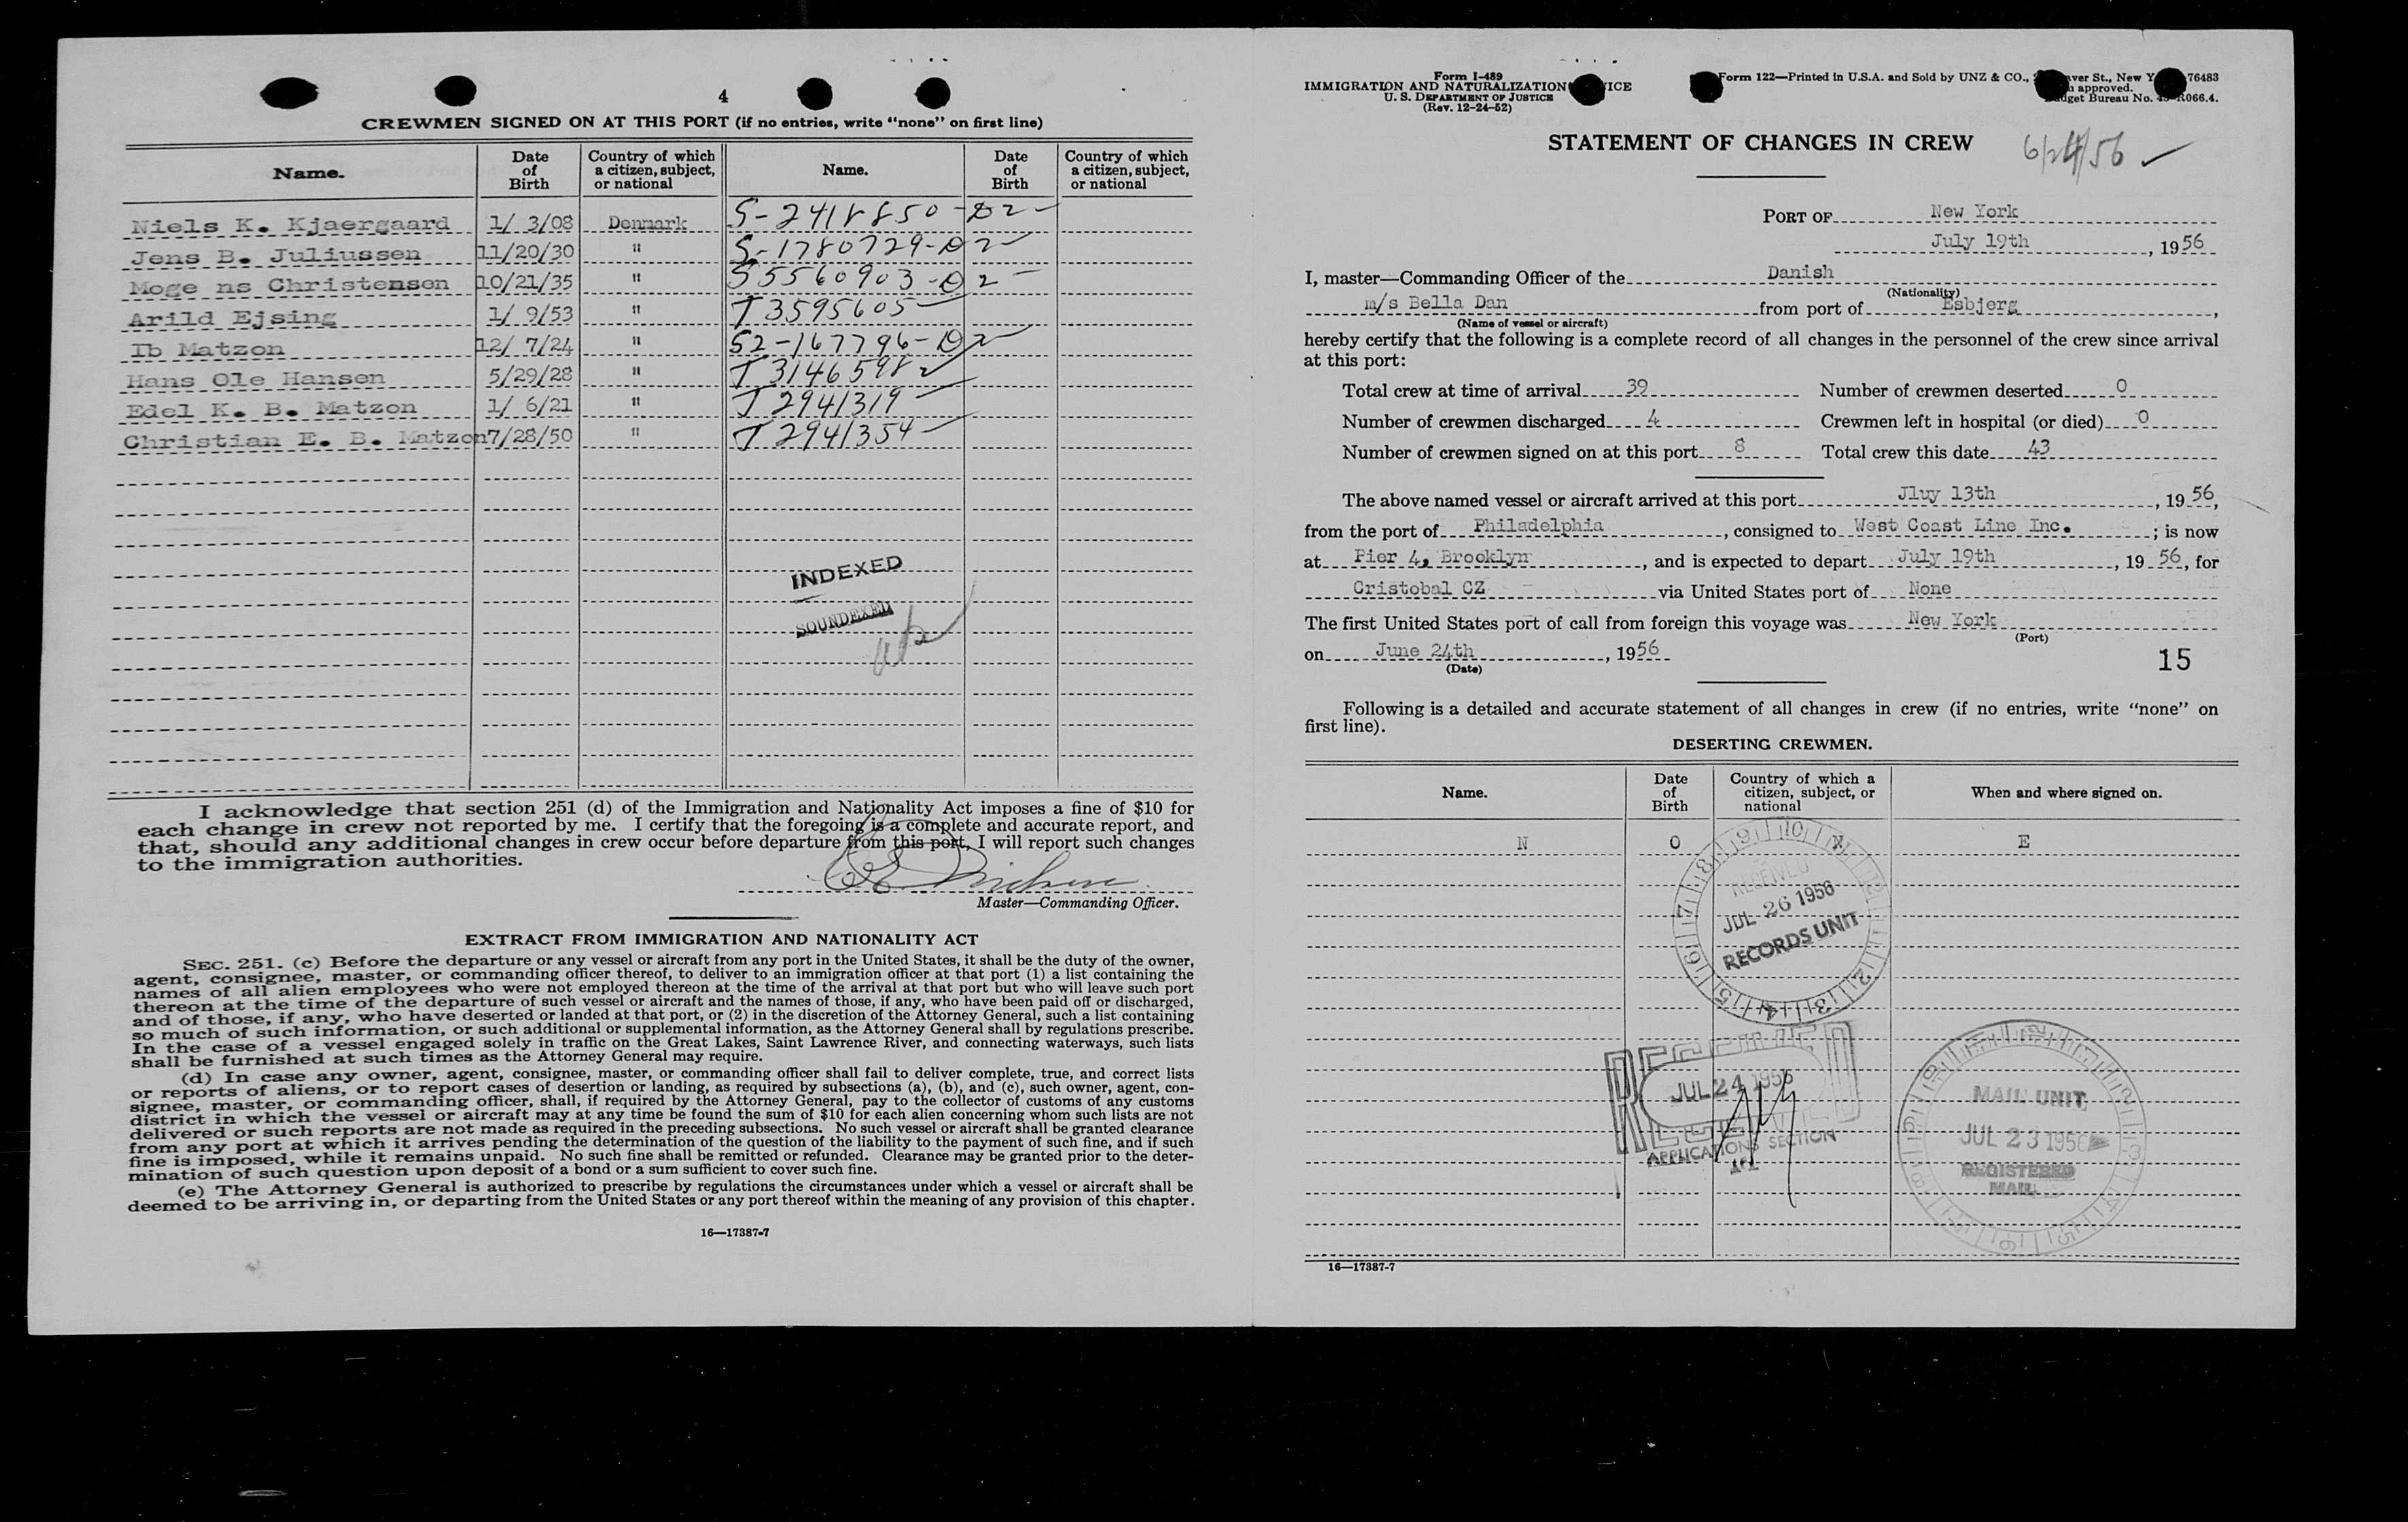 4
CREWMEN SIGNED ON AT THIS PORT (if no entries, write “none” on first line)
Name. Date of Birth Country of which a citizen, subject, or national Name. Date of Birth Country of which a citizen, subject, or national
Niels K. Kjaergaard 1/ 3/08 Denmark S-2418850-D2
Jens B. Juliussen 11/20/30 " S-1780729-D2
Moge ns Christensen 10/21/35 " S5560903-D2
Arild Ejsing 1/ 9/53 " T 3595605
Ib Matzon 12/ 7/24 " S2-167796-D2
Hans Ole Hansen 5/29/28 " T 3146598
Edel K. B. Matzon 1/ 6/21 " T 2941319
Christian E. B. Matzon 7/28/50 " T 2941354
INDEXED
SOUNDEXED
I acknowledge that section 251 (d) of the Immigration and Nationality Act imposes a fine of $10 for
each change in crew not reported by me. I certify that the foregoing is a complete and accurate report, and
that, should any additional changes in crew occur before departure from this port, I will report such changes
to the immigration authorities.
Master—Commanding Officer.
EXTRACT FROM IMMIGRATION AND NATIONALITY ACT
SEC. 251. (c) Before the departure or any vessel or aircraft from any port in the United States, it shall be the duty of the owner,
agent, consignee, master, or commanding officer thereof, to deliver to an immigration officer at that port (1) a list containing the
names of all alien employees who were not employed thereon at the time of the arrival at that port but who will leave such port
thereon at the time of the departure of such vessel or aircraft and the names of those, if any, who have been paid off or discharged,
and of those, if any, who have deserted or landed at that port, or (2) in the discretion of the Attorney General, such a list containing
so much of such information, or such additional or supplemental information, as the Attorney General shall by regulations prescribe.
In the case of a vessel engaged solely in traffic on the Great Lakes, Saint Lawrence River, and connecting waterways, such lists
shall be furnished at such times as the Attorney General may require.
(d) In case any owner, agent, consignee, master, or commanding officer shall fail to deliver complete, true, and correct lists
or reports of aliens, or to report cases of desertion or landing, as required by subsections (a), (b), and (c), such owner, agent, con-
signee, master, or commanding officer, shall, if required by the Attorney General, pay to the collector of customs of any customs
district in which the vessel or aircraft may at any time be found the sum of $10 for each alien concerning whom such lists are not
delivered or such reports are not made as required in the preceding subsections. No such vessel or aircraft shall be granted clearance
from any port at which it arrives pending the determination of the question of the liability to the payment of such fine, and if such
fine is imposed, while it remains unpaid. No such fine shall be remitted or refunded. Clearance may be granted prior to the deter-
mination of such question upon deposit of a bond or a sum sufficient to cover such fine.
(e) The Attorney General is authorized to prescribe by regulations the circumstances under which a vessel or aircraft shall be
deemed to be arriving in, or departing from the United States or any port thereof within the meaning of any provision of this chapter.
16—17387-7
Form I-489
IMMIGRATION AND NATURALIZATION
U. S. DEPARTMENT OF JUSTICE
(Rev. 12-24-52)
Form 122—Printed in U.S.A. and Sold by UNZ & CO., St., New 76483
approved.
Bureau No. R066.4.
STATEMENT OF CHANGES IN CREW 6/24/56
PORT OF New York
July 19th, 1956
I, master—Commanding Officer of the Danish
(Nationality)
m/s Bella Dan from port of Esbjerg,
(Name of vessel or aircraft)
hereby certify that the following is a complete record of all changes in the personnel of the crew since arrival
at this port:
Total crew at time of arrival 39 Number of crewmen deserted 0
Number of crewmen discharged 4 Crewmen left in hospital (or died) 0
Number of crewmen signed on at this port 8 Total crew this date 43
The above named vessel or aircraft arrived at this port Jluy 13th, 1956,
from the port of Philadelphia, consigned to West Coast Line Inc.; is now
at Pier 4, Brooklyn, and is expected to depart July 19th, 1956, for
Cristobal CZ via United States port of None
The first United States port of call from foreign this voyage was New York
(Port)
on June 24th, 1956
(Date)
15
Following is a detailed and accurate statement of all changes in crew (if no entries, write “none” on
first line).
DESERTING CREWMEN.
Name. Date of Birth Country of which a citizen, subject, or national When and where signed on.
N O N E
RECEIVED
JUL 26 1956
RECORDS UNIT
RECEIVED
JUL 24 1956
APPLICATIONS SECTION
MAIL UNIT
JUL 23 1956
REGISTERED
MAIL
16—17387-7